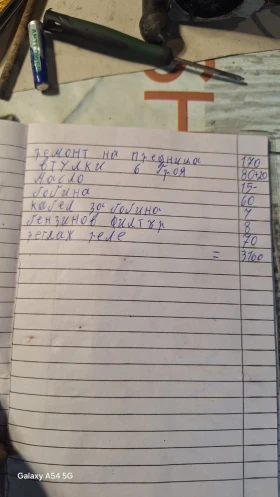 ремонт на предница 170
втулки 6 броя 80+20
Масло 15-
бобина 60
кабел за бобина 7
бензинов филтър 8
реглаж реле 70
=
Galaxy A54 5G